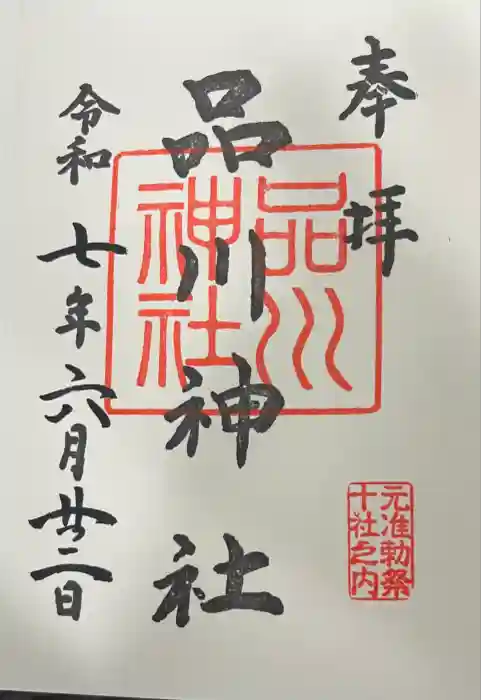 奉拝
品川神社
令和七年六月廿二日
品川
神社
元准勅祭
十社之内